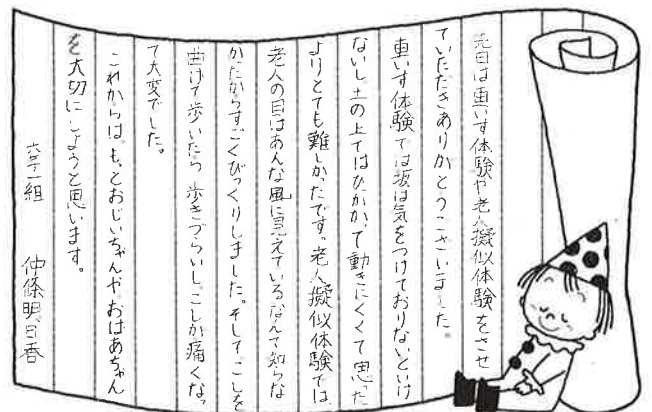 先日は車いす体験や老人擬似体験をさせ
ていただきありがとうございました。
車いす体験では坂は気をつけておりないといけ
ないし土の上ではひっかかって動きにくくて思った
よりとても難しかったです。老人擬似体験では、
老人の目はあんな風に見えているなんて知らな
かったからすごくびっくりしました。そして、こしを
曲げて歩いたら歩きづらいし、こしが痛くなっ
て大変でした。
これからは、もっとおじいちゃんや、おばあちゃん
を大切にしようと思います。
六年一組 仲條明日香